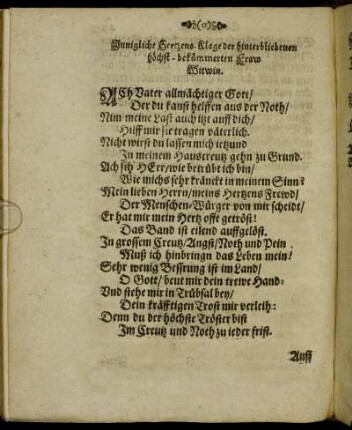 (o)
Innigliche Hertzens-Klage der hinterbliebenen
höchst-bekümmerten Fraw
Witwin.
ACh Vater allmächtiger Gott/
Der du kanst helffen aus der Noth/
Nim meine Last auch itzt auff dich/
Hilff mir sie tragen väterlich.
Nicht wirst du lassen mich ietzund
In meinem Hauscreutz gehn zu Grund.
Ach sih HErr/wie betrübt ich bin/
Wie michs sehr kränckt in meinem Sinn?
Mein lieben Herrn/meins Hertzens Frewd/
Der Menschen-Würger von mir scheidt/
Er hat mir mein Hertz offt getröst!
Das Band ist eilend auffgelöst.
In grossem Creutz/Angst/Noth und Pein
Muß ich hinbringn das Leben mein!
Sehr wenig Bessrung ist im Land/
O Gott/beut mir dein trewe Hand:
Vnd stehe mir in Trübsal bey/
Dein kräfftigen Trost mir verleih:
Denn du der höchste Tröster bist
Im Creutz und Noth zu ieder frist.
Auff